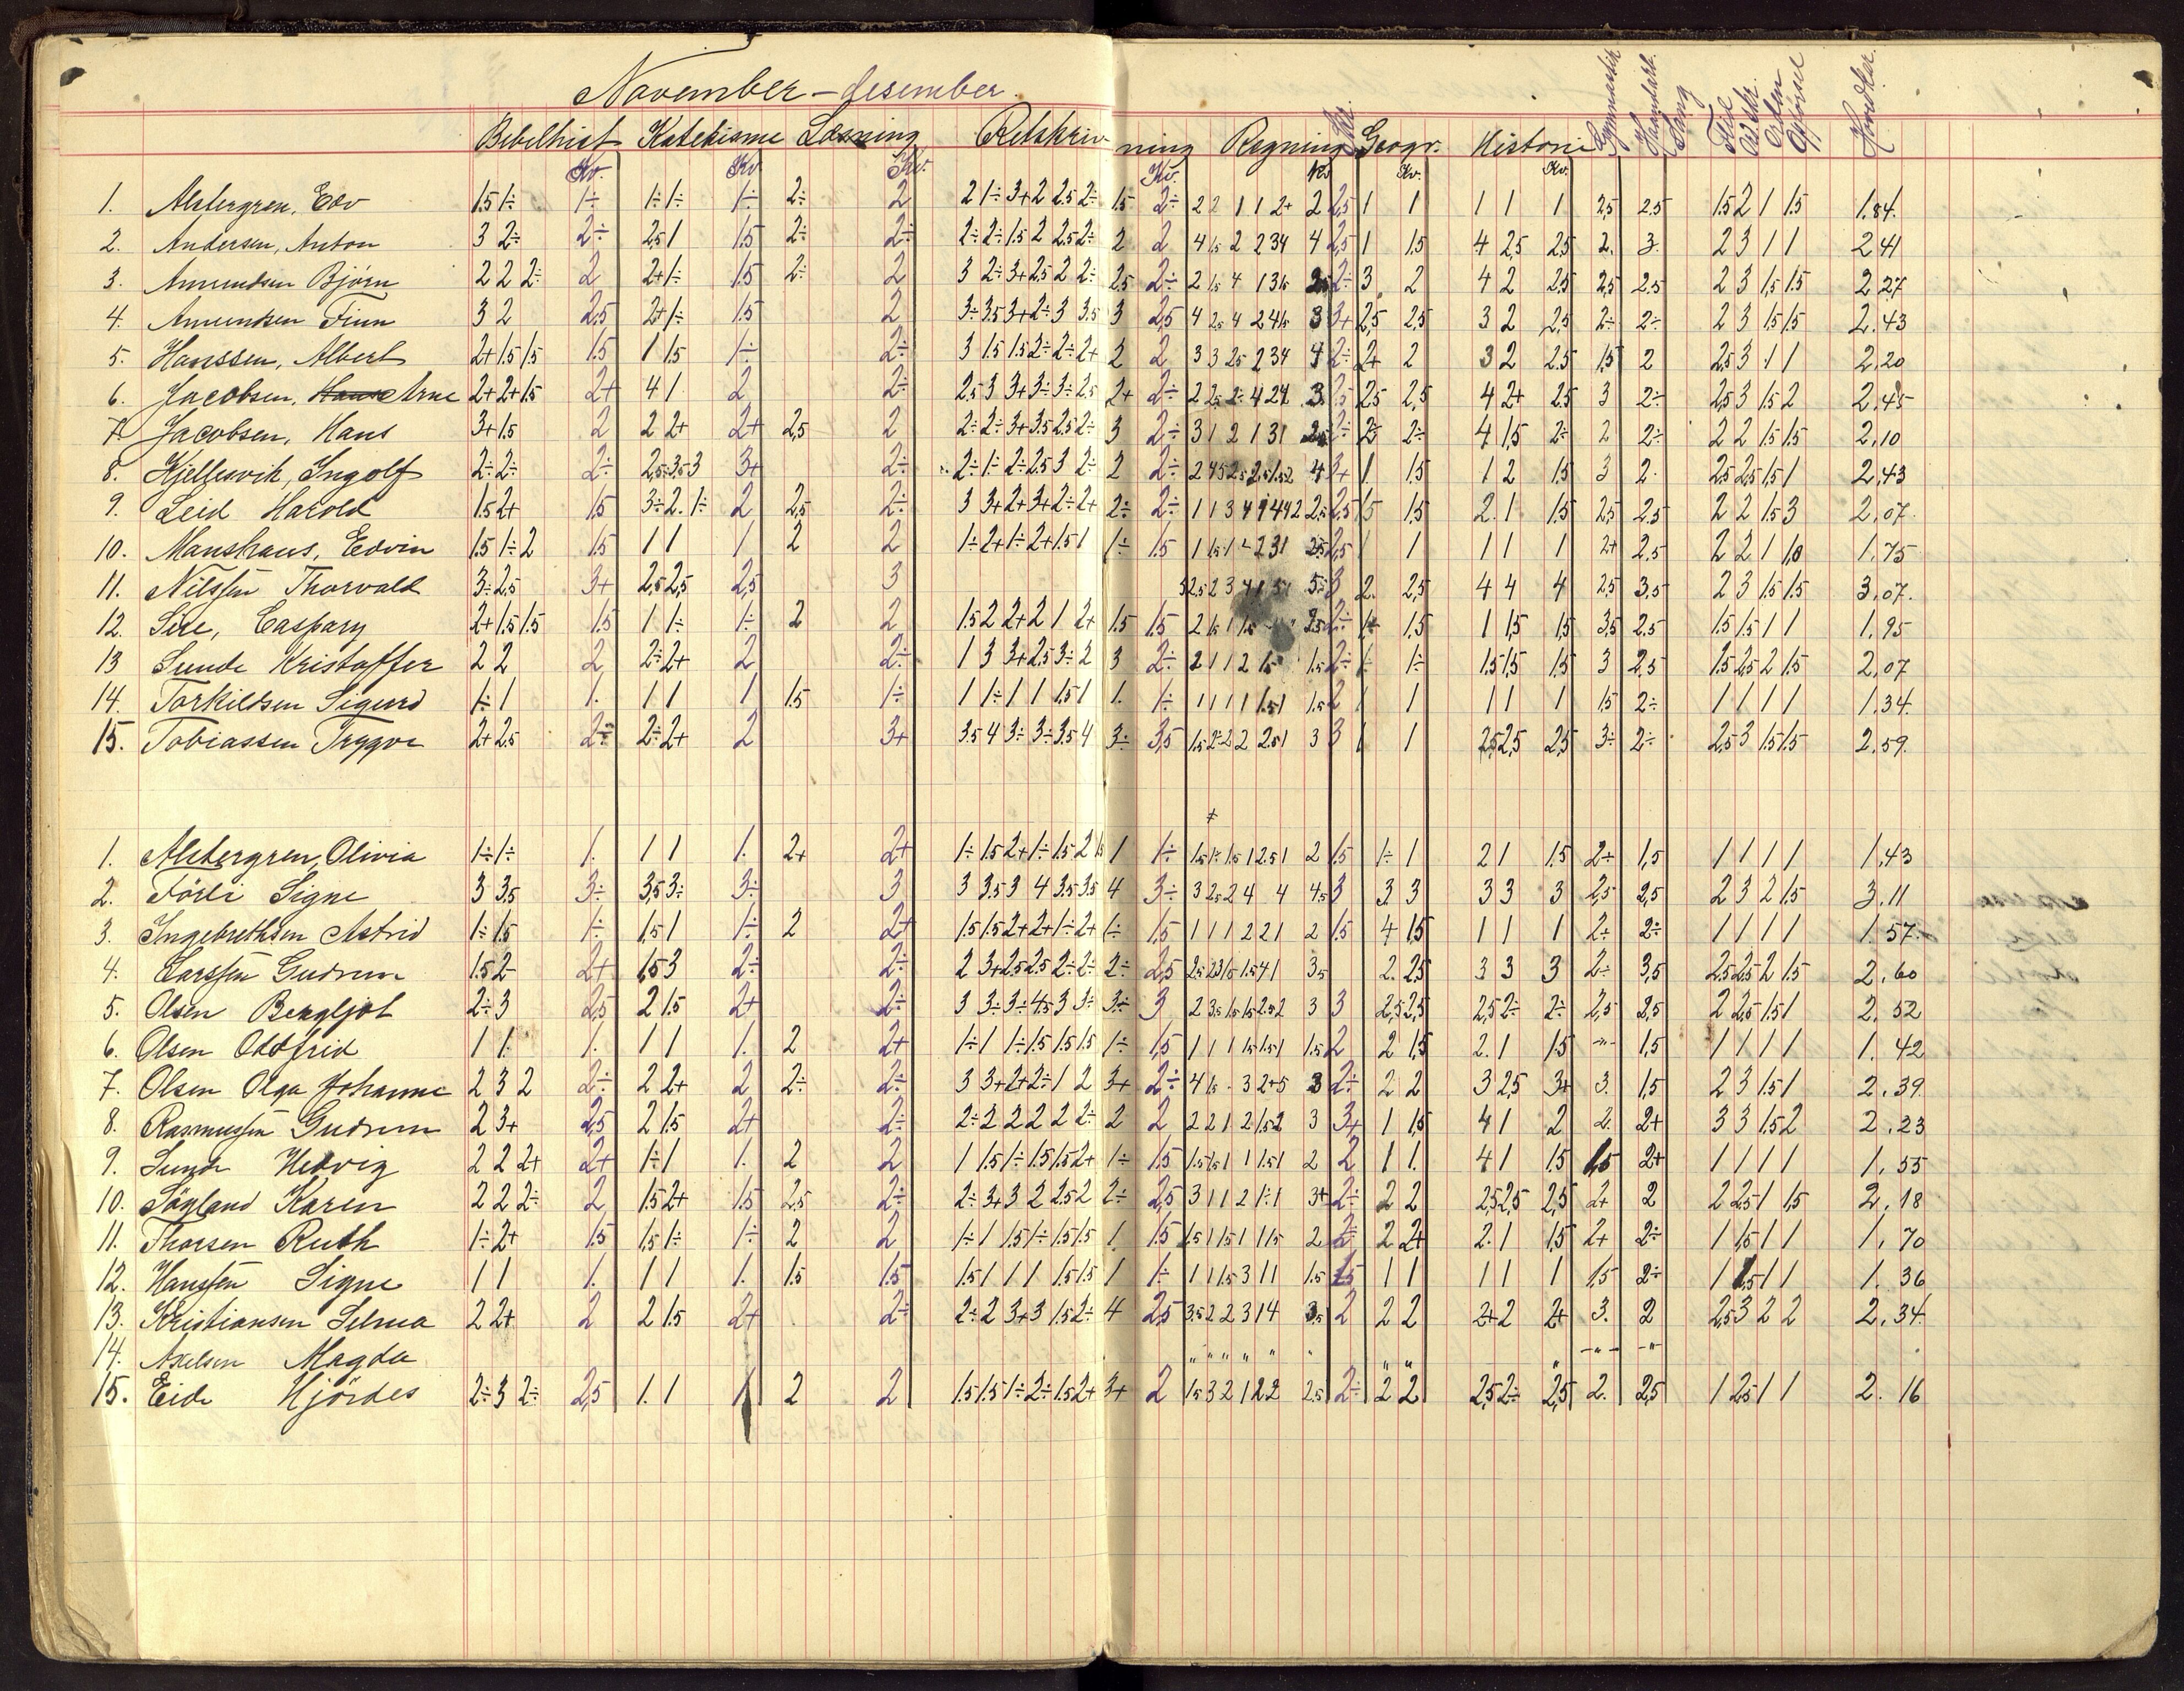 November – desember
Bibelhist Katekisme Læsning Retskriv ning Regning Skr. Geogr. Historie Gymnastik Haandarb. Sang Flid Orden Opførsel
Kv. Kv. Kv. Kv. Kv. Kv. Kv.
1. Alstergren, Edv 15 1÷ 1÷ 1÷ 1÷ 1÷ 2÷ 2 2 1÷ 3+ 2 2.5 2÷ 1.5 2÷ 2 2 1 1 2+ 2 2,5 1 1 1 1 1 2,5 2.5 1.5 2 1 1.5 1.84.
2. Andersen, Anton 3 2÷ 2÷ 2,5 1 1.5 2÷ 2÷ 2÷ 2÷ 1.5 2 2.5 2÷ 2 2 4 1.5 2 2 3 4 4 2,5 1 1.5 4 2.5 2.5 2. 3. 2 3 1 1 2 41
3. Amundsen Bjørn 2 2 2÷ 2 2+ 1÷ 1.5 2÷ 2 3 2÷ 3+ 2.5 2 2÷ 2.5 2÷ 2 1.5 4 1 3 1.5 2÷ 3 2 4 2 2.5 2,5 2.5 2 3 1.5 1.5 2 27
4. Amundsen Finn 3 2 2,5 2+ 1÷ 1.5 2 3÷ 3.5 3+ 2÷ 3 3.5 3 2,5 4 2.5 4 2 4 1.5 3 3+ 2,5 2,5 3 2 2,5 2÷ 2÷ 2 3 1.5 1.5 2.43
5. Hanssen, Albert 2+ 1.5 1.5 1.5 1 1.5 1÷ 2÷ 3 1.5 1.5 2÷ 2÷ 2+ 2 2 3 3 2.5 2 3 4 4 2÷ 2+ 2 3 2 2.5 1.5 2 2.5 3 1 1 2,20
6. Jacobsen, Hans Arne 2+ 2+ 1.5 2+ 4 1 2 2÷ 2.5 3 3+ 3÷ 3÷ 2.5 2+ 2÷ 2 2.5 2÷ 4 2 4 3 2.5 2,5 4 2+ 2.5 3 2÷ 2.5 3 1.5 2 2.45
7. Jacobsen, Hans 3+ 1.5 2 2 2+ 2+ 2,5 2 2÷ 2÷ 3+ 3.5 2.5 2÷ 3 2÷ 3 1 2 1 3 1 2÷ 2÷ 4 1,5 2÷ 2 2÷ 2 2 1.5 1.5 2,10
8. Kjellesvik, Ingolf 2÷ 2÷ 2÷ 2,5 3.5 3 3+ 2÷ 2÷ 1÷ 2÷ 2.5 3 2÷ 2 2÷ 4 3+ 1 1.5 1 2 1.5 3 2. 2.5 2.5 1.5 1 2,43
9. Leid Harold 1.5 2+ 1.5 3÷ 2. 1÷ 2 2,5 2÷ 3 3+ 2+ 3+ 2÷ 2+ 2÷ 2÷ 1 1 3 4 9 4 4 2 2.5 2,5 1.5 1.5 2. 1 1.5 2,5 2.5 2 2 1.5 3 2,07.
10. Manshaus, Edvin 1.5 1÷ 2 1.5 1 1 1 2 2 1÷ 2+ 1÷ 2+ 1.5 1 1÷ 1.5 2,5 1 1 1 1 1 2+ 2,5 2 2 1 1.75
11. Nilssen Thorvald 3÷ 2,5 3+ 2,5 2,5 2,5 3 5÷ 3 2. 2,5 4 4 4 2,5 3,5 2 3 1.5 1.5 3,07.
12. Sire, Caspary 2+ 1.5 1.5 1.5 1 1÷ 1÷ 2 2 1.5 2 2+ 2 1 2+ 1.5 1.5 2÷ 1.5 1 1,5 1.5 3,5 2.5 1.5 1.5 1 1 1,95
13 Sunde Kristoffer 2 2 2 2÷ 2+ 2 2÷ 1 3 3+ 2.5 3÷ 2 3 2÷ 2 1 1 2 1.5 1.5 2÷ 1÷ 1÷ 1.5 1.5 1.5 3 2,5 1.5 2.5 2 1.5 2,07
14. Torkildsen Sigurd 1÷ 1 1. 1 1 1 1.5 1÷ 1 1÷ 1 1 1.5 1 1. 1÷ 1 1 1 1 1.5 1 1.5 2 1 1 1 1 1 1.5 2÷ 1 1 1 1 1.34.
15. Tobiassen Trygve 2+ 2.5 2÷ 2÷ 2+ 2 3+ 3.5 4 3÷ 3÷ 3.5 4 3÷ 3,5 1.5 2÷ 2 2 2.5 1 3 3 1 1 2,5 2,5 2,5 3÷ 2÷ 2,5 3 1.5 1.5 2.59.
1. Alstergren, Olivia 1÷ 1÷ 1. 1 1 1. 2+ 2+ 1÷ 1.5 2+ 1÷ 1.5 2 1 1÷ 1.5 1÷ 1.5 1 2.5 1 2 1.5 1÷ 1 2 1 1.5 2+ 1,5 1 1 1 1 1,43
2. Förli Signe 3 3.5 3÷ 3,5 3÷ 3÷ 3 3 3.5 3 4 3.5 3.5 4 3÷ 3 2.5 2 4 4 4.5 3 3 3 3 3 3 2,5 2,5 2 3 2 1.5 3.11
3. Ingebrethsen Astrid 1÷ 1.5 1÷ 1,5 1 1÷ 2 2+ 1.5 1.5 2+ 2+ 1÷ 2+ 1÷ 1,5 1 1 1 2 2 1 2 1.5 4 1.5 1 1 1 2+ 2÷ 1 1 1 1 1. 57.
4. Larssen Gudrun 1.5 2- 2+ 1.5 3 2÷ 2÷ 2 3+ 2.5 2.5 2÷ 2÷ 2÷ 2,5 3.5 2. 2.5 3 3 3 2÷ 3,5 2.5 2.5 2 1.5 2. 60
5. Olsen Bergljot 2÷ 3 2,5 2 1.5 2+ 2÷ 3 3÷ 3÷ 4.5 3 3÷ 3÷ 3 2 3.5 1.5 1.5 2.5 2 3 3 2,5 2,5 2,5 2÷ 2÷ 2,5 2,5 2 2,5 1.5 1 2. 52
6. Olsen Oddfrid 1 1. 1. 1 1 1. 2 2+ 1÷ 1 1÷ 1.5 1.5 1.5 1÷ 1,5 1 1 1 1.5 1.5 1 1.5 2 2 1,5 2. 1 1.5 -"- 1,5 1 1 1 1 1. 42
7. Olsen Olga Johanne 2 3 2 2÷ 2 2+ 2 2÷ 2÷ 3 3+ 2+ 2÷ 1 2 3+ 2÷ 4 1.5 - 3 2+ 5 3 2÷ 2 2 3 2,5 3+ 3. 1,5 2 3 1.5 1 2. 39.
8. Rasmussen Gudrun 2 3+ 2,5 2 1.5 2+ 2÷ 2÷ 2 2 2 2 2÷ 2 2 2 2 1 2 1.5 2 3 3+ 1 1,5 4 1 2 2. 2+ 3 3 1.5 2 2. 23
9. Sunde Hedvig 2 2 2+ 2+ 1÷ 1 1. 2 2 1 1.5 1÷ 1.5 1.5 2+ 1÷ 1.5 1.5 1.5 1 1 1.5 1 2 2 1 1. 4 1 1.5 1,5 2+ 1 1 1 1 1. 55
10. Sögland Karen 2 2 2÷ 2 1.5 2+ 1.5 2,5 2÷ 2÷ 3+ 3 2 2.5 2 2÷ 2,5 3 1 1 2 1÷ 1 3+ 2÷ 2 2 2,5 2,5 2,5 2+ 2 2 2.5 1 1,5 2. 18
11. Thorsen Ruth 1÷ 2+ 1.5 1,5 1÷ 1÷ 2 2 1÷ 1 1.5 1÷ 1.5 1.5 1 1.5 1.5 1 1.5 1 1 1.5 2 2÷ 2 2+ 2. 1 1,5 2+ 2÷ 1 1,5 1 1 1. 70
12. Hanssen Signe 1 1 1. 1 1 1. 1.5 1.5 1.5 1 1 1 1.5 1.5 1 1÷ 1 1 1.5 3 1 1 1.5 1.5 1 1 1 1 1 1.5 2÷ 1 1.5 1 1 1. 36
13. Kristiansen Selma 2 2+ 2 2 1.5 2+ 2÷ 2÷ 2 3+ 3 1.5 2÷ 4 2,5 3.5 2 2 3 1 4 3.5 2 2 2 2+ 2 2+ 3. 2 2,5 3 2 2 2. 34.
14. Axelsen Magda " " " " " " " " " -"- -"-
15. Eide Hjördes 2÷ 3 2÷ 2,5 1. 1 1 2 2 1.5 1.5 1÷ 2÷ 1.5 2+ 3+ 2 1.5 3 2 1 2 2 2.5 2÷ 2 2 2,5 2÷ 2,5 2. 2,5 1 2.5 1 1 2. 16